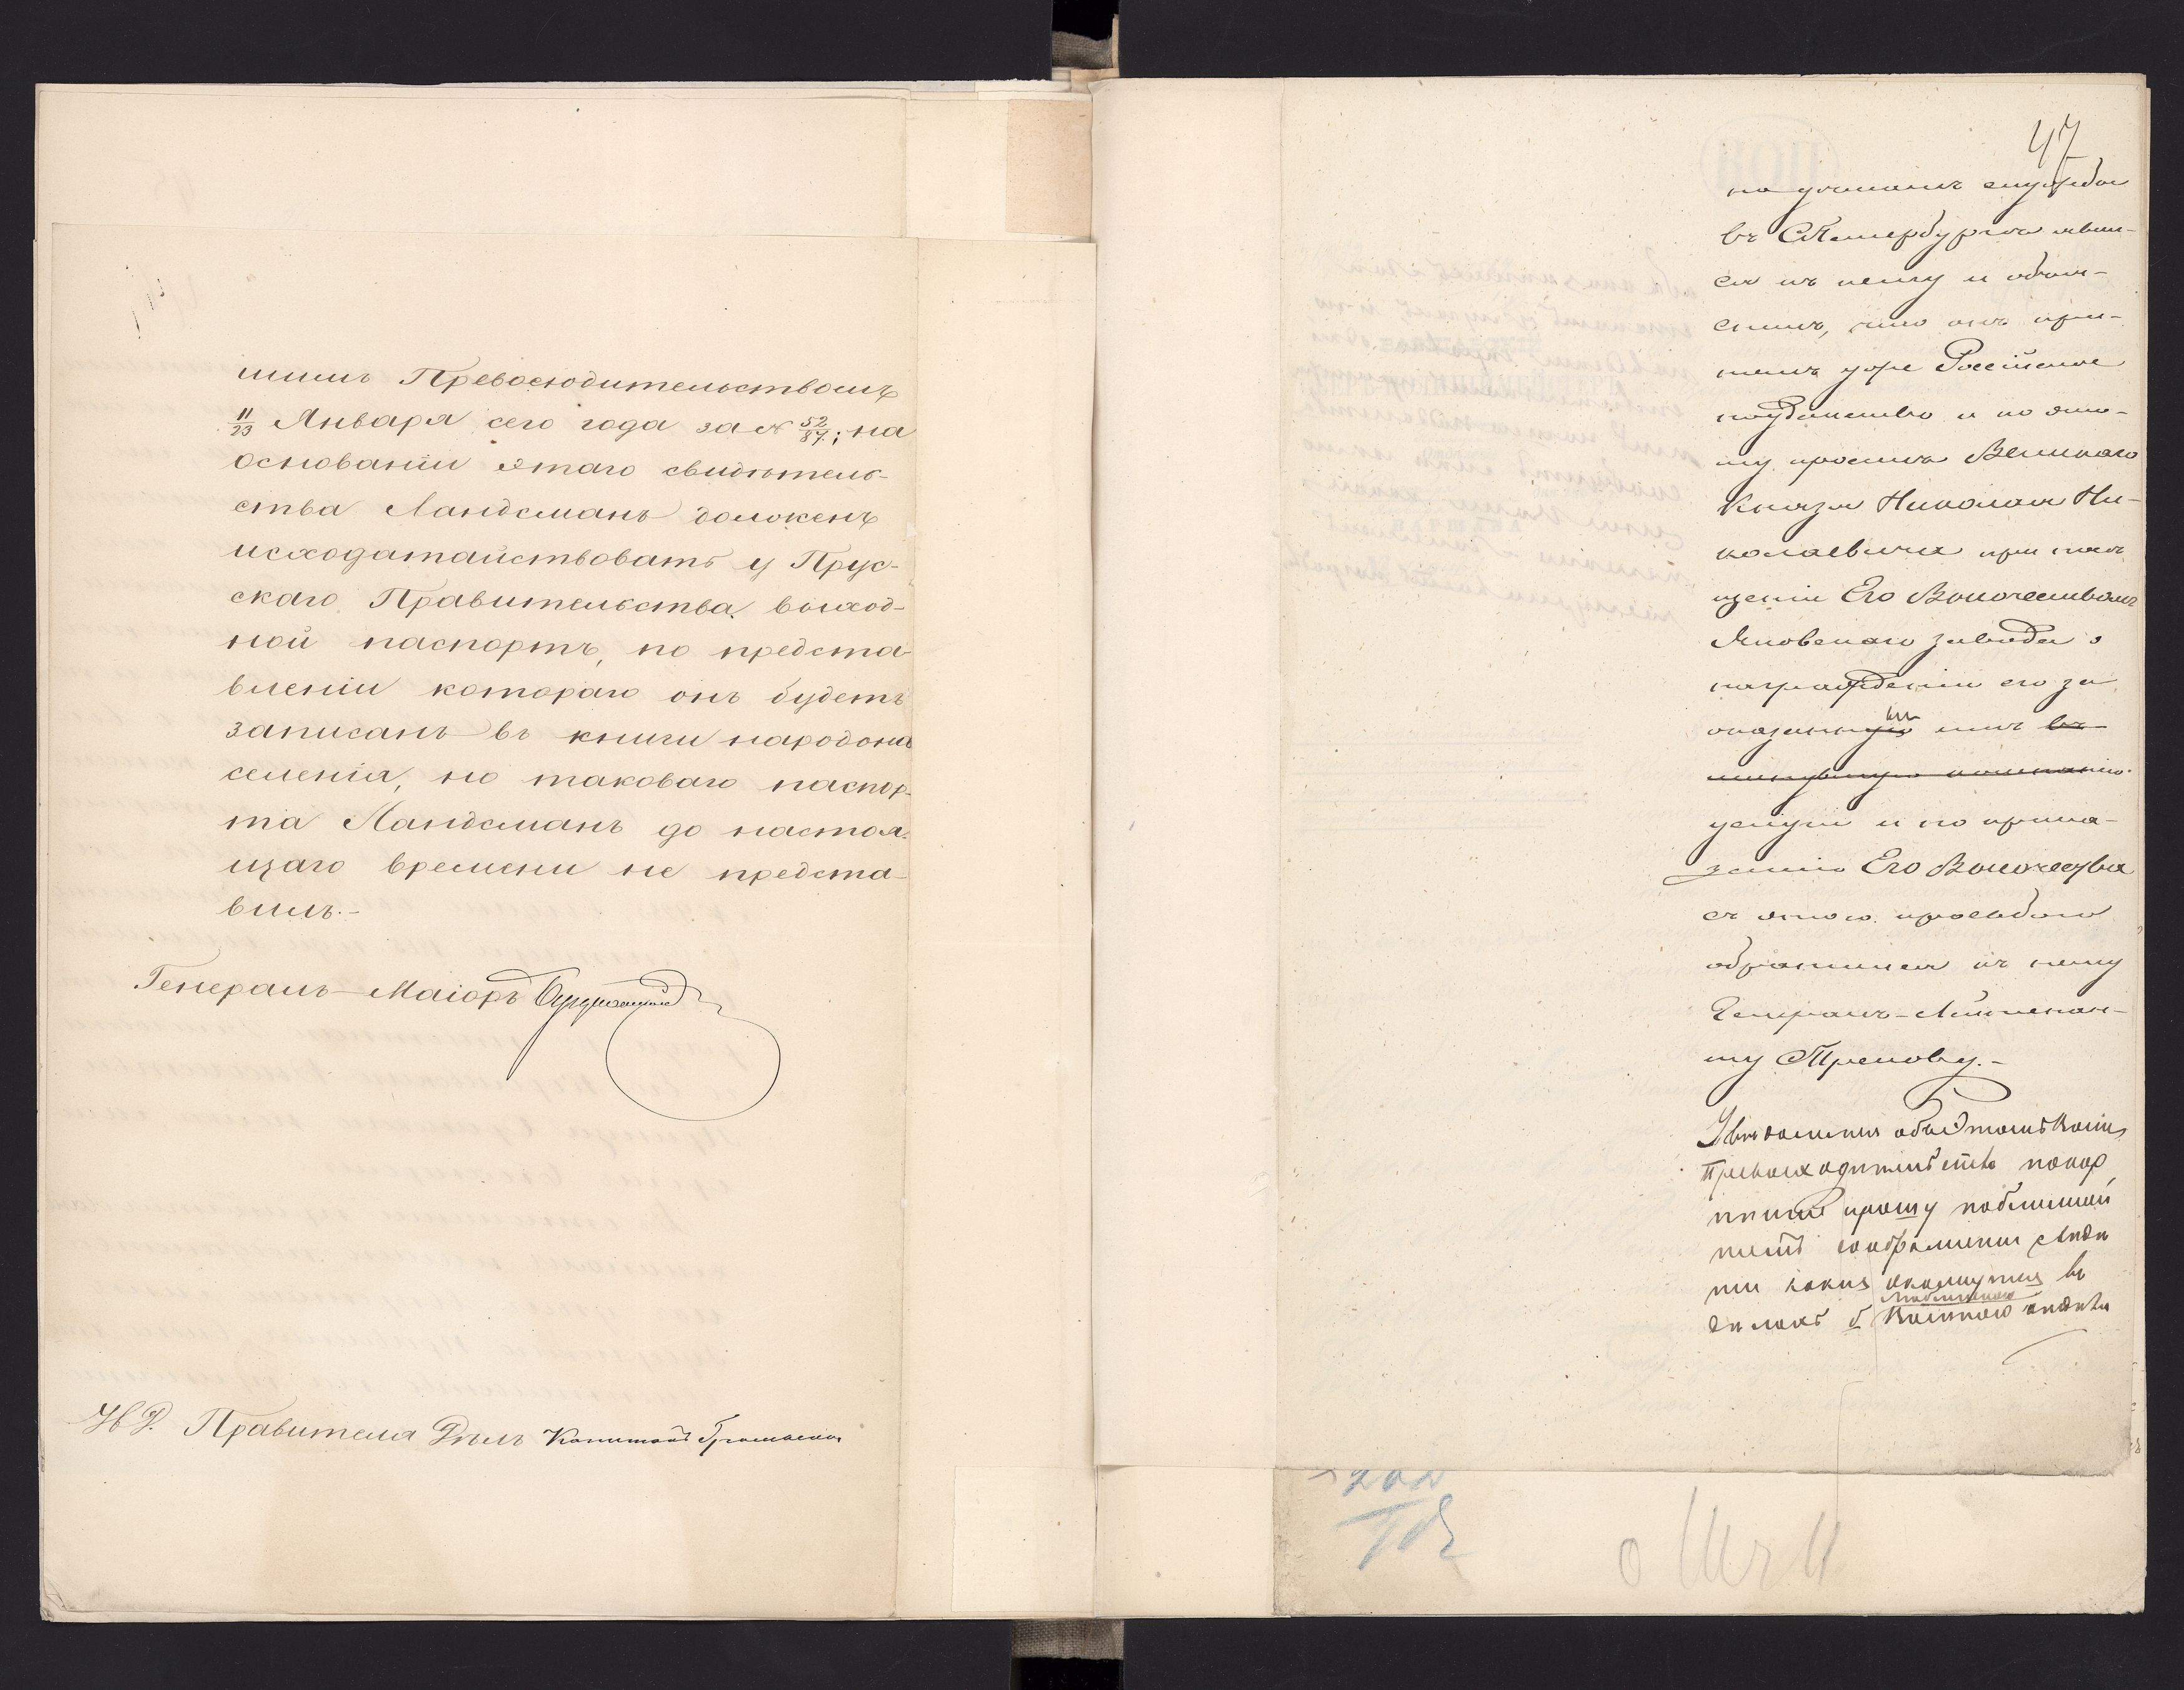 шимъ Превосходительствомъ
11/23 Января сего года за № 52/87; на
основаніи этаго свидѣтель-
ства Ландсманъ долженъ
исходатайствовать у Прус-
скаго Правительства выход-
ной паспортъ, по предста-
вленіи котораго онъ будетъ
записанъ въ книги народона
селенія, но таковаго паспор-
та Ландсманъ до настоя-
щаго времени не предста-
вилъ.-
Генералъ-Маіоръ
И. Д. Правителя Дѣлъ Капитанъ
47
по дѣламъ службы
въ СПетербургѣ явил-
ся къ нему и объяс-
нилъ, что онъ при-
нялъ уже Россійское
подданство и по это-
му просилъ Великаго
Князя Николая Ни-
колаевича при посѣ
щеніи Его Высочествомъ
Яновскаго завода о
награжденіи его за
оказанныя имъ въ
минувшую кампанію
услуги и по прика-
занію Его Высочества
съ этою просьбою
обратился къ нему
Генералъ-Лейтенан-
ту Трепову.-
Увѣдомляя объ этомъ Ваше
Превосходительство покор
нѣйше прошу
дѣлахъ б Военнаго отдѣла
202